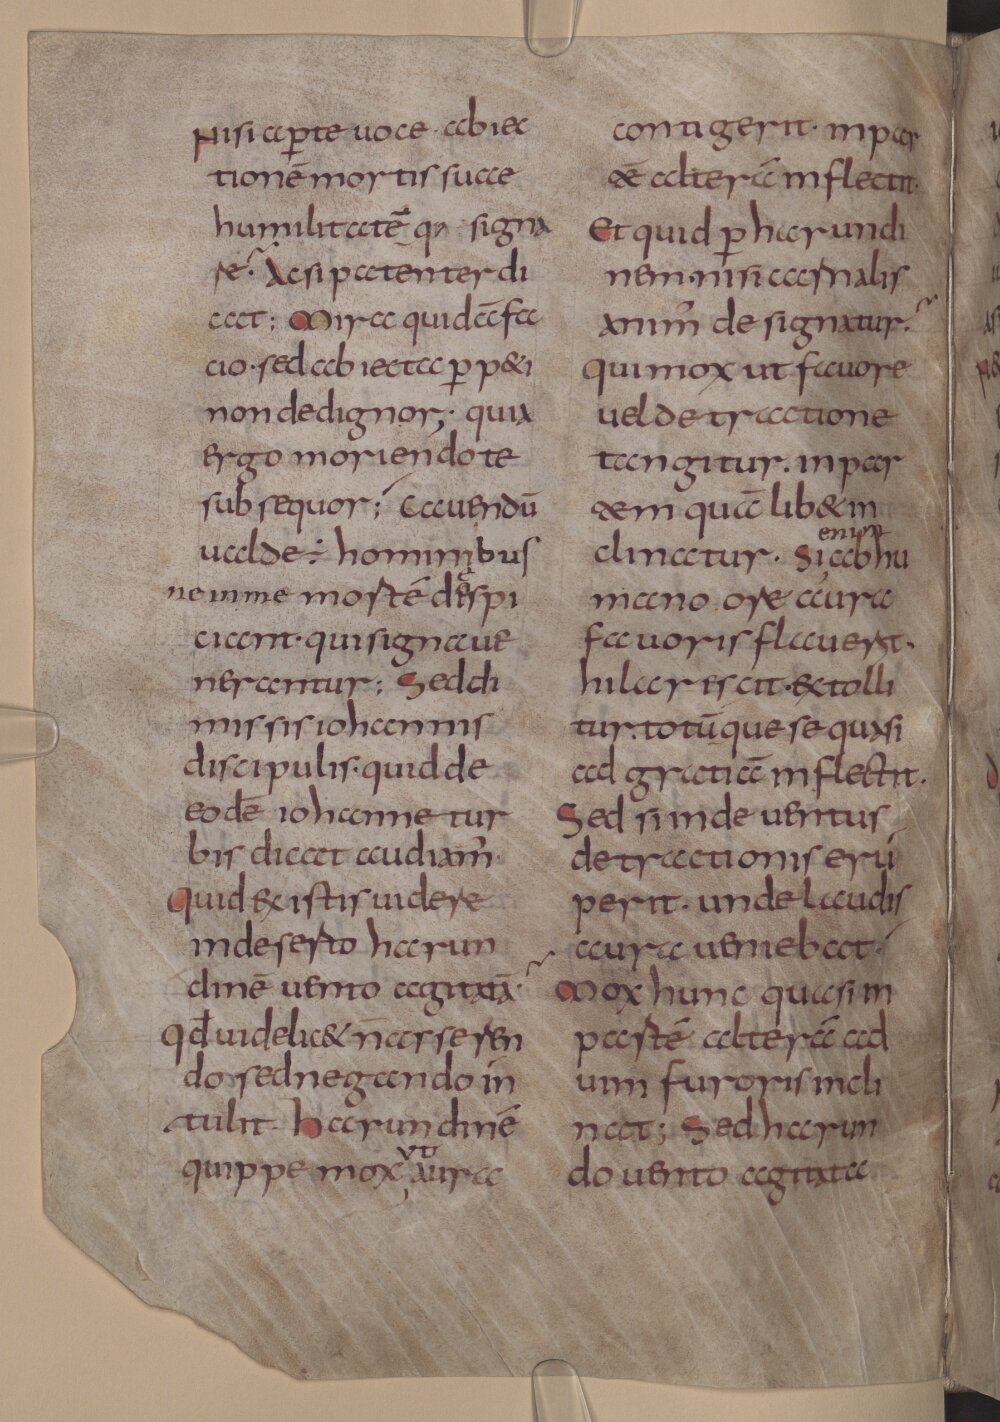 Nisi aꝑte uoce abiec
tionē mortis suae
humilitatē qͥ signa
re. Acsi patenter di
cat; Mira quidē fa
cio. sed abiecta ꝑpeti
non dedignor; quia
ergo moriendo te
subsequor; Cauendū
ualde ÷ hominibus
ne inme mortē despi
ciant. qui signa ue
nerantur; Sed di
missis iohannis
discipulis. quid de
eodē iohanne tur
bis dicat audiam̄.
Quid &xistis uidere
in deserto harun
dinē uento agitatā.
Qd̄ uidelic& n̄ asseren
do. sed negando in
tulit. harundinē
quippe mox ut aura
contigerit. in par
tē alterā inflectit.
Et quid ꝑ harundi
nem. nisi carnalis
anim̄ designatur.
qui mox ut fauore
uel detractione
tangitur. in par
tem quālib& in
clinatur. Si enim ab hu
mano ore aura
fauoris flauerit.
hilarescit. &xtolli
tur. totūque se quasi
ad gratiā inflectit.
Sed si inde uentus
detractionis erū
perit. unde laudis
aura ueniebat.
Mox hunc quasi in
partē alterā ad
uim furoris incli
nat; Sed harun
do uento agitata